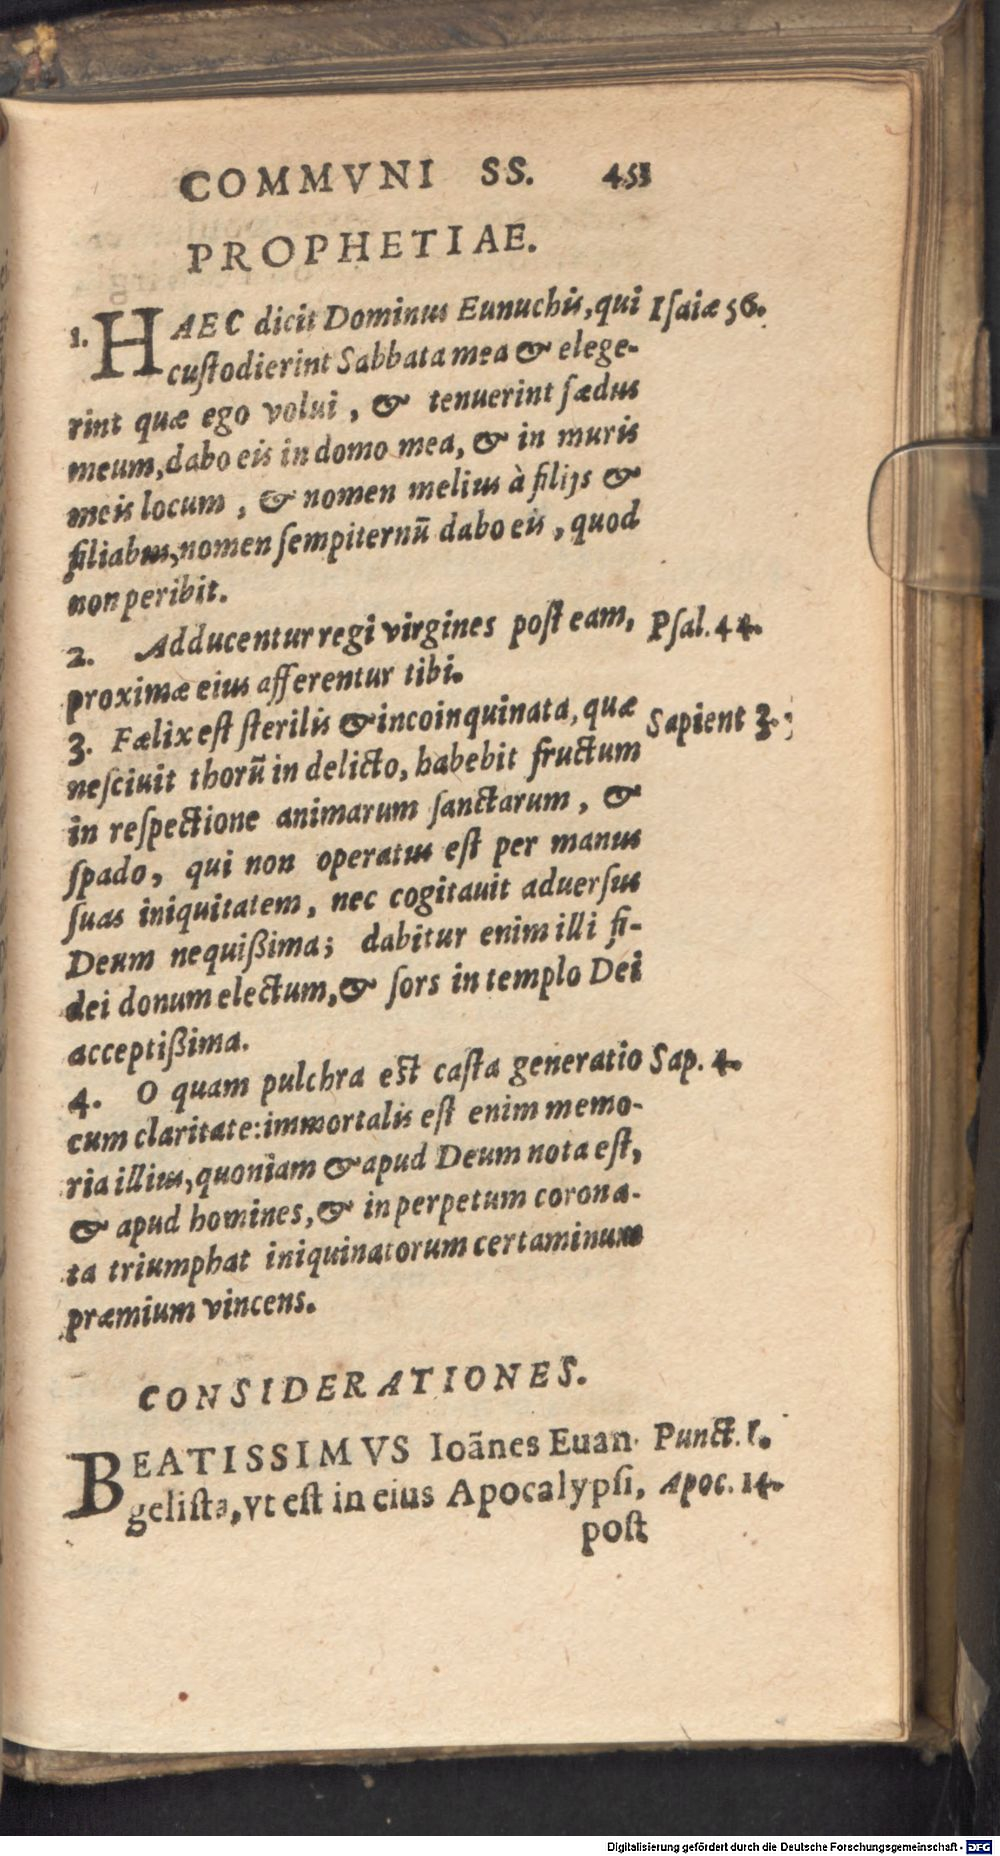 COMMVNI SS. 453
PROPHETIAE.
1. HAEC dicit Dominus Eunuchis, qui Isaiæ 56.
custodierint Sabbata mea & elege-
rint quæ ego volui, & tenuerint fædus
meum, dabo eis in domo mea, & in muris
meis locum, & nomen melius à filijs &
filiabus, nomen sempiternū dabo eis, quod
non peribit.
2. Adducentur regi virgines post eam, Psal. 44.
proximæ eius afferentur tibi.
3. Fælix est sterilis & incoinquinata, quæ Sapient 3.
nesciuit thorū in delicto, habebit fructum
in respectione animarum sanctarum, &
spado, qui non operatus est per manus
suas iniquitatem, nec cogitauit aduersus
Deum nequißima; dabitur enim illi fi-
dei donum electum, & sors in templo Dei
acceptißima.
4. O quam pulchra est casta generatio Sap. 4.
cum claritate: immortalis est enim memo-
ria illius, quoniam & apud Deum nota est,
& apud homines, & in perpetum corona-
ta triumphat iniquinatorum certaminum
præmium vincens.
CONSIDERATIONES.
BEATISSIMVS Ioānes Euan- Punct. 1.
gelista, vt est in eius Apocalypsi, Apoc. 14.
post
Digitalisierung gefördert durch die Deutsche Forschungsgemeinschaft - DFG